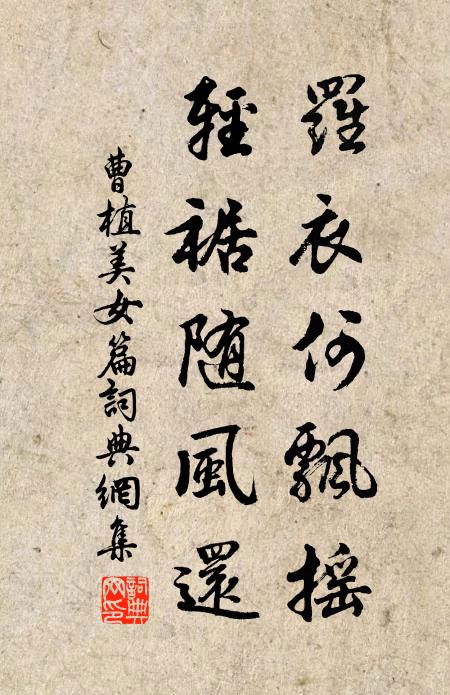 羅衣何飄摇
輕裾随風還
曹植美女篇詞典網集
詞典網印